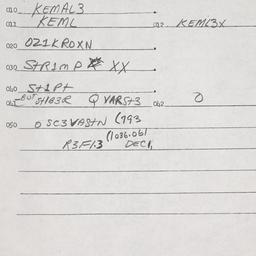 010 KEMAL3
011 KEML 012 KEML3X
020 021KROXN
030 StR1MP XX
040 St1Pt
041 BUT SH1B3R Q VARSt3 042 O
050 O SC3VAStN (793
(1036.061
R3F1.3 DEC1,